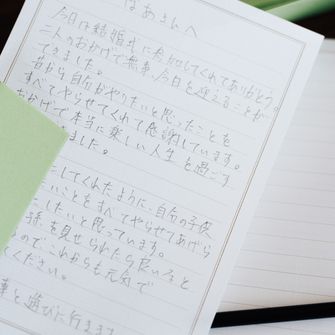 ばあさんへ
今日は結婚式に参加してくれてありがとう。
二人のおかげで無事、今日を迎えることが
できました。
昔から自分がやりたいと思ったことを
すべてやらせてくれて感謝しています。
おかげで本当に楽しい人生を過ごす
ました。
にしてくれたように、自分の子供
いことをすべてやらせてあげら
にしたいと思っています。
孫を見せられたら良いなと
ので、これからも元気で
ください。
事と遊びに行きます